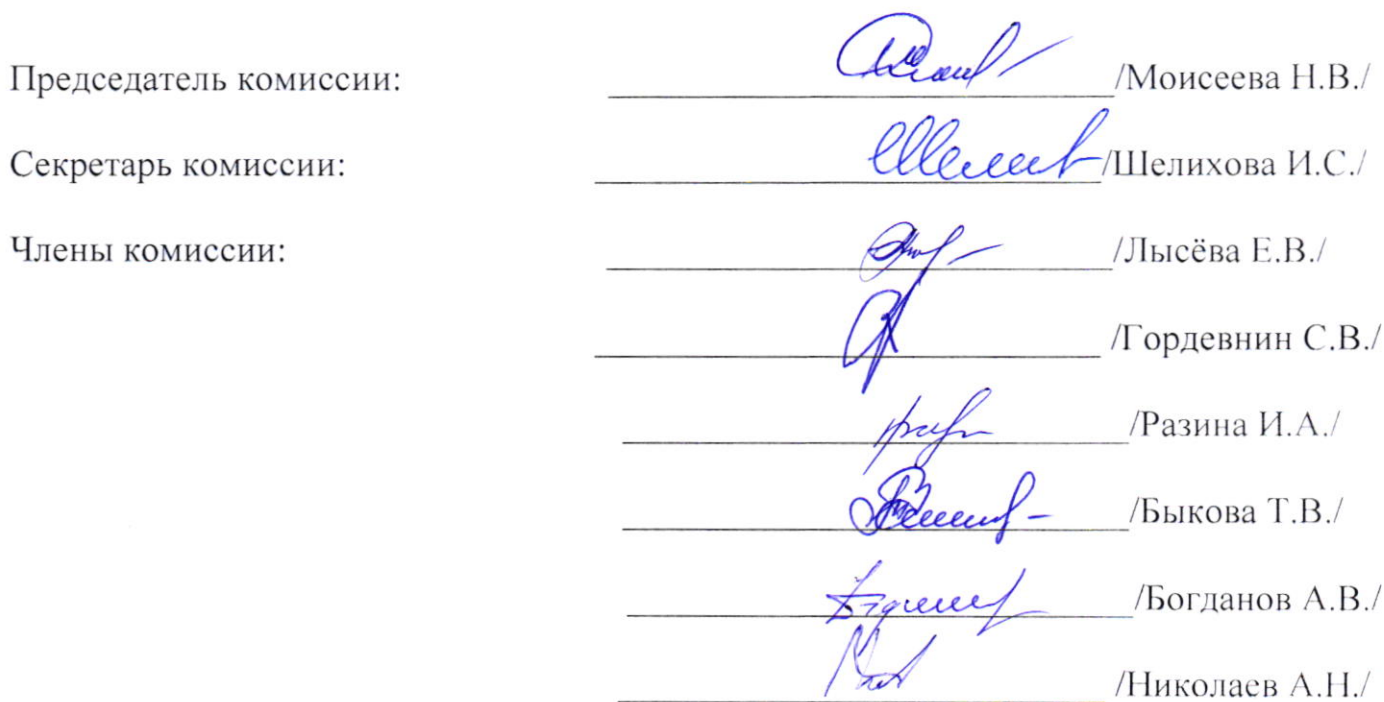 Председатель комиссии: /Моисеева Н.В./
Секретарь комиссии: /Шелихова И.С./
Члены комиссии: /Лысёва Е.В./
/Гордевнин С.В./
/Разина И.А./
/Быкова Т.В./
/Богданов А.В./
/Николаев А.Н./